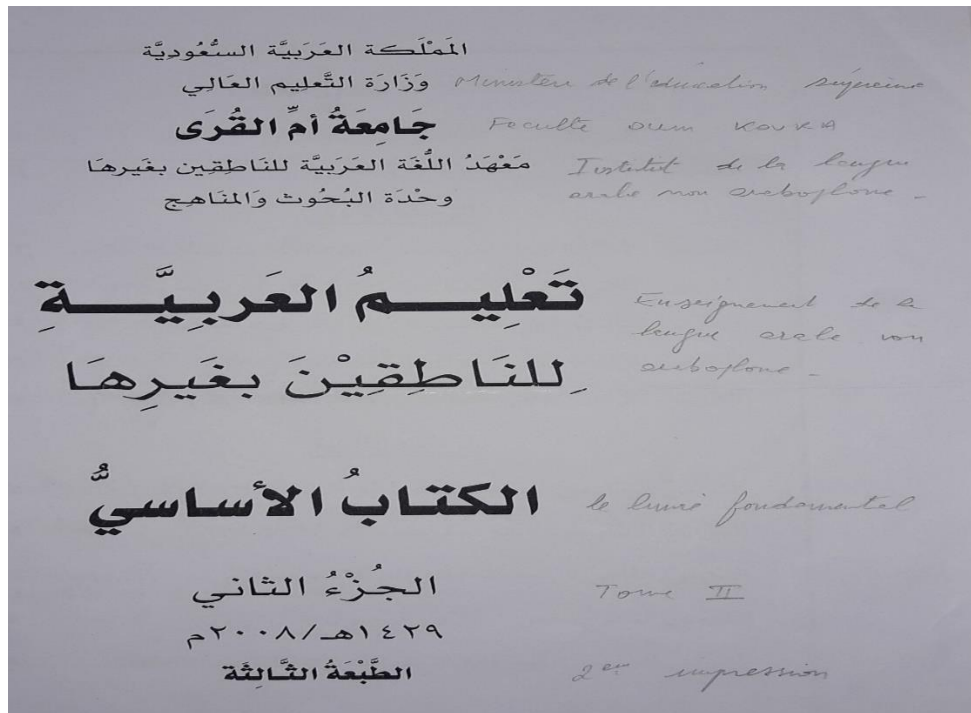 المَملَكة العَرَبيَّة السُّعُوديَّة
وَزَارَة التَّعلِيم العَالي Ministère de l'éducation supérieure
جَامِعَةُ أمِّ القُرَى Faculté oum KOURA
مَعْهَدُ اللُّغَة العَرَبيَّة للنَاطِقِين بغَيرهَا Institut de la langue
وحْدَة البُحُوث وَالمنَاهِج arabe non araboplone -
تَعْلِيـمُ العَربِيَّـةِ Enseignement de la
langue arabe non
لِلنَاطِقِيْنَ بغَيرِهَا araboplone -
الكتابُ الأساسيُّ le livre fondamental
الجُزْءُ الثاني Tome II
١٤٢٩هـ/٢٠٠٨م
الطَّبْعَةُ الثَّالِثَة 2em impression